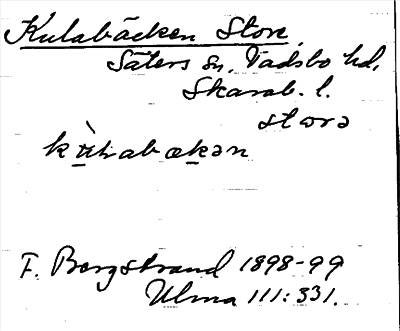 Kulabäcken Store
Säters sn, Vadsbo hd,
Skarab. l.
storə
kɯ̀labækən
F. Bergstrand 1898-99
Ulma 111:331.